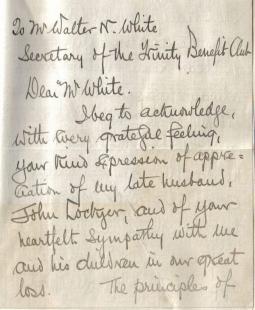 To Mr Walter N. White
Secretary of the Trinity Benefit Club
Dear Mr White.
I beg to acknowledge,
with every grateful feeling,
your kind expression of appre=
ciation of my late husband,
John, and of your
heartfelt sympathy with me
and his children in our great
loss. The principles of